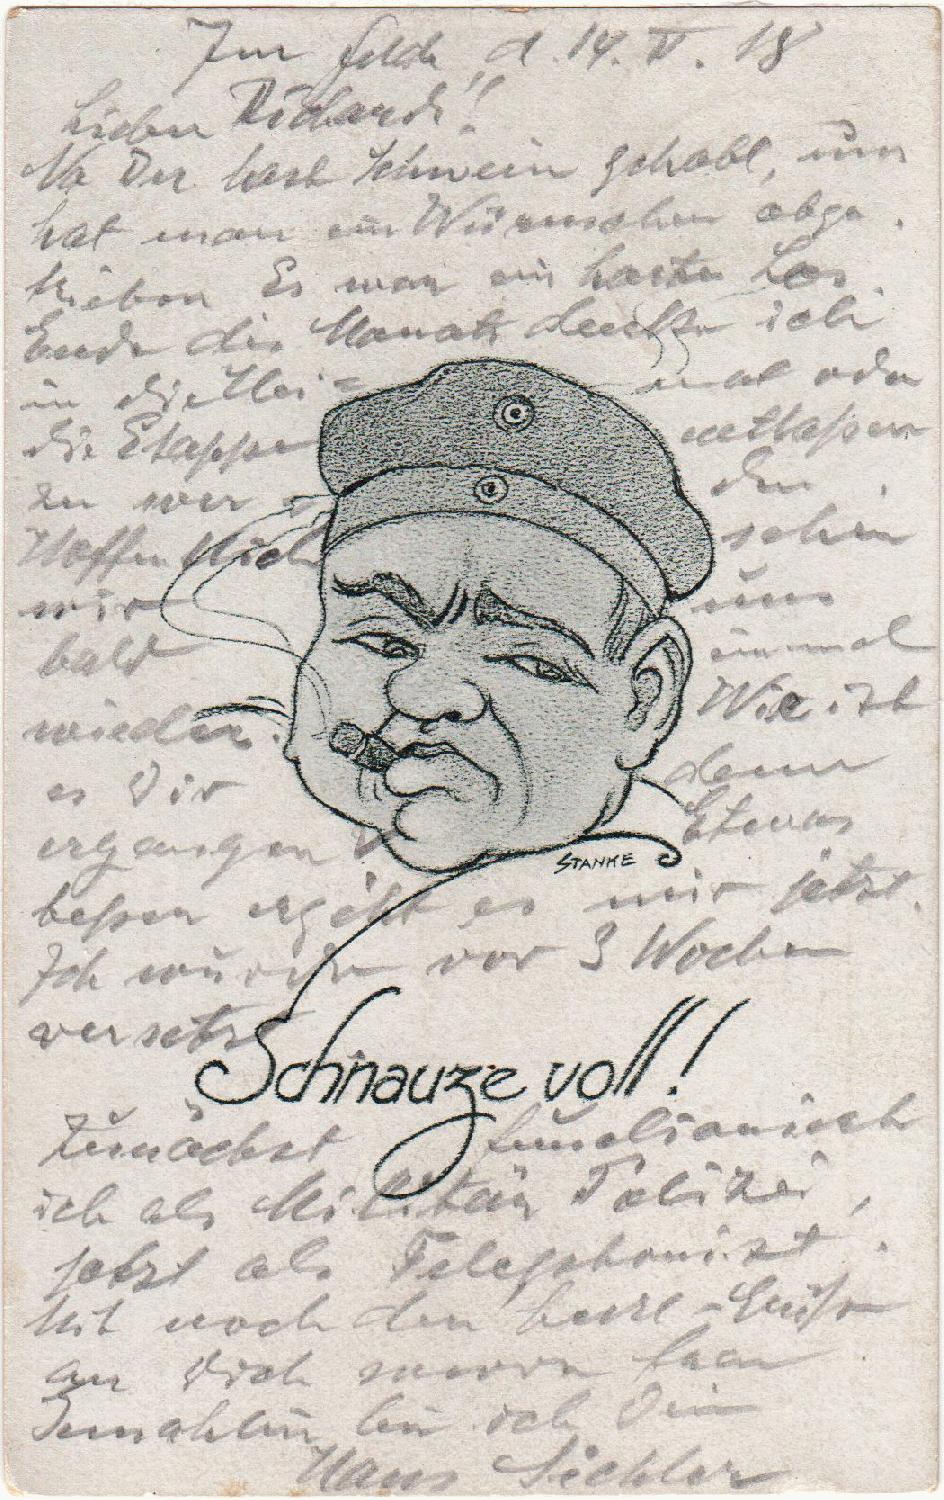 Im Felde, d. 14. V. 18
Lieber Richard!
Na Du hast Schwein gehabt, uns
hat man ein Würmchen abge-
trieben Es war ein hartes Los.
Ende des Monats denke ich
in die Hei= mat oder
die Etappe entlassen
zu wer den
Hoffentlich sehen
wir uns
bald einmal
wieder. Wie ist
es Dir denn
ergangen? Etwas
besser ergeht es mir jetzt.
Ich wurde vor 3 Wochen
versetzt
STANKE
Schnauze voll!
Zunächst
ich als Militär Polizei,
jetzt als Telephonist.
Mit noch den Grüßen
an Dich
Gemahlin bin ich Dein
Hans